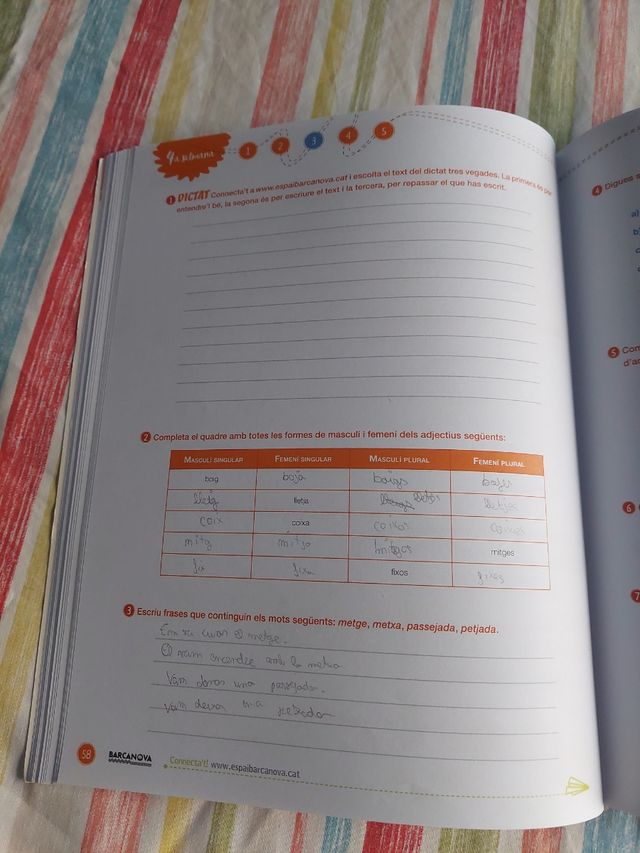 4a setmana
1 2 3 4 5
1 DICTAT Connecta't a www.espaibarcanova.cat i escolta el text del dictat tres vegades. La primera és per
entendre'l bé, la segona és per escriure el text i la tercera, per repassar el que has escrit.
2 Completa el quadre amb totes les formes de masculí i femení dels adjectius següents:
MASCULÍ SINGULAR FEMENÍ SINGULAR MASCULÍ PLURAL FEMENÍ PLURAL
boig boja boigs bojes
lletg lletja lletjos lletjes
coix coixa coixos coixes
mitg mitja mitgos mitges
fix fixa fixos fixes
3 Escriu frases que continguin els mots següents: metge, metxa, passejada, petjada.
Em va curar el metge.
amb la metxa
Vam donar una passejada.
vam deixar una petjada
58 BARCANOVA Connecta't! www.espaibarcanova.cat
4 Digues
a)
b)
c
5 Com
d'a
6
7